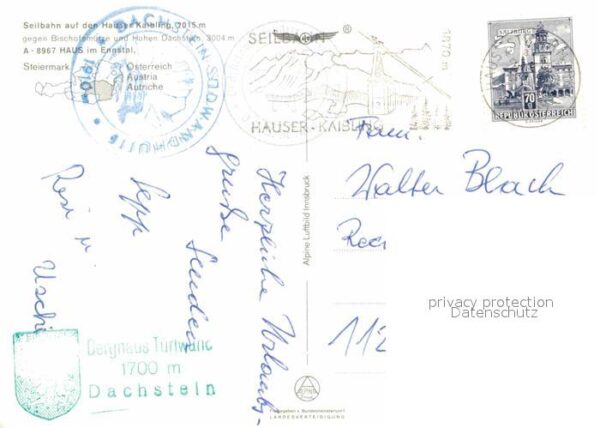 Seilbahn auf den Hauser Kaibling, 2015 m
gegen Bischofsmütze und Hohen Dachstein, 3004 m
A - 8967 HAUS im Ennstal,
Steiermark
Österreich
Austria
Autriche
DACHSTEIN SÜDWANDHÜTTE
1910 m
SEILBAHN
1870 m
HAUSER-KAIBLING
70
REPUBLIK ÖSTERREICH
Fam.
Walter Blach
112
Herzliche Urlaubs-
grüße
Senden
Sepp
Resi u.
Uschi
Alpine Luftbild Innsbruck
Berghaus Türlwand
1700 m
Dachstein
Freigegeben v. Bundesministerium f.
LANDESVERTEIDIGUNG
privacy protection
Datenschutz